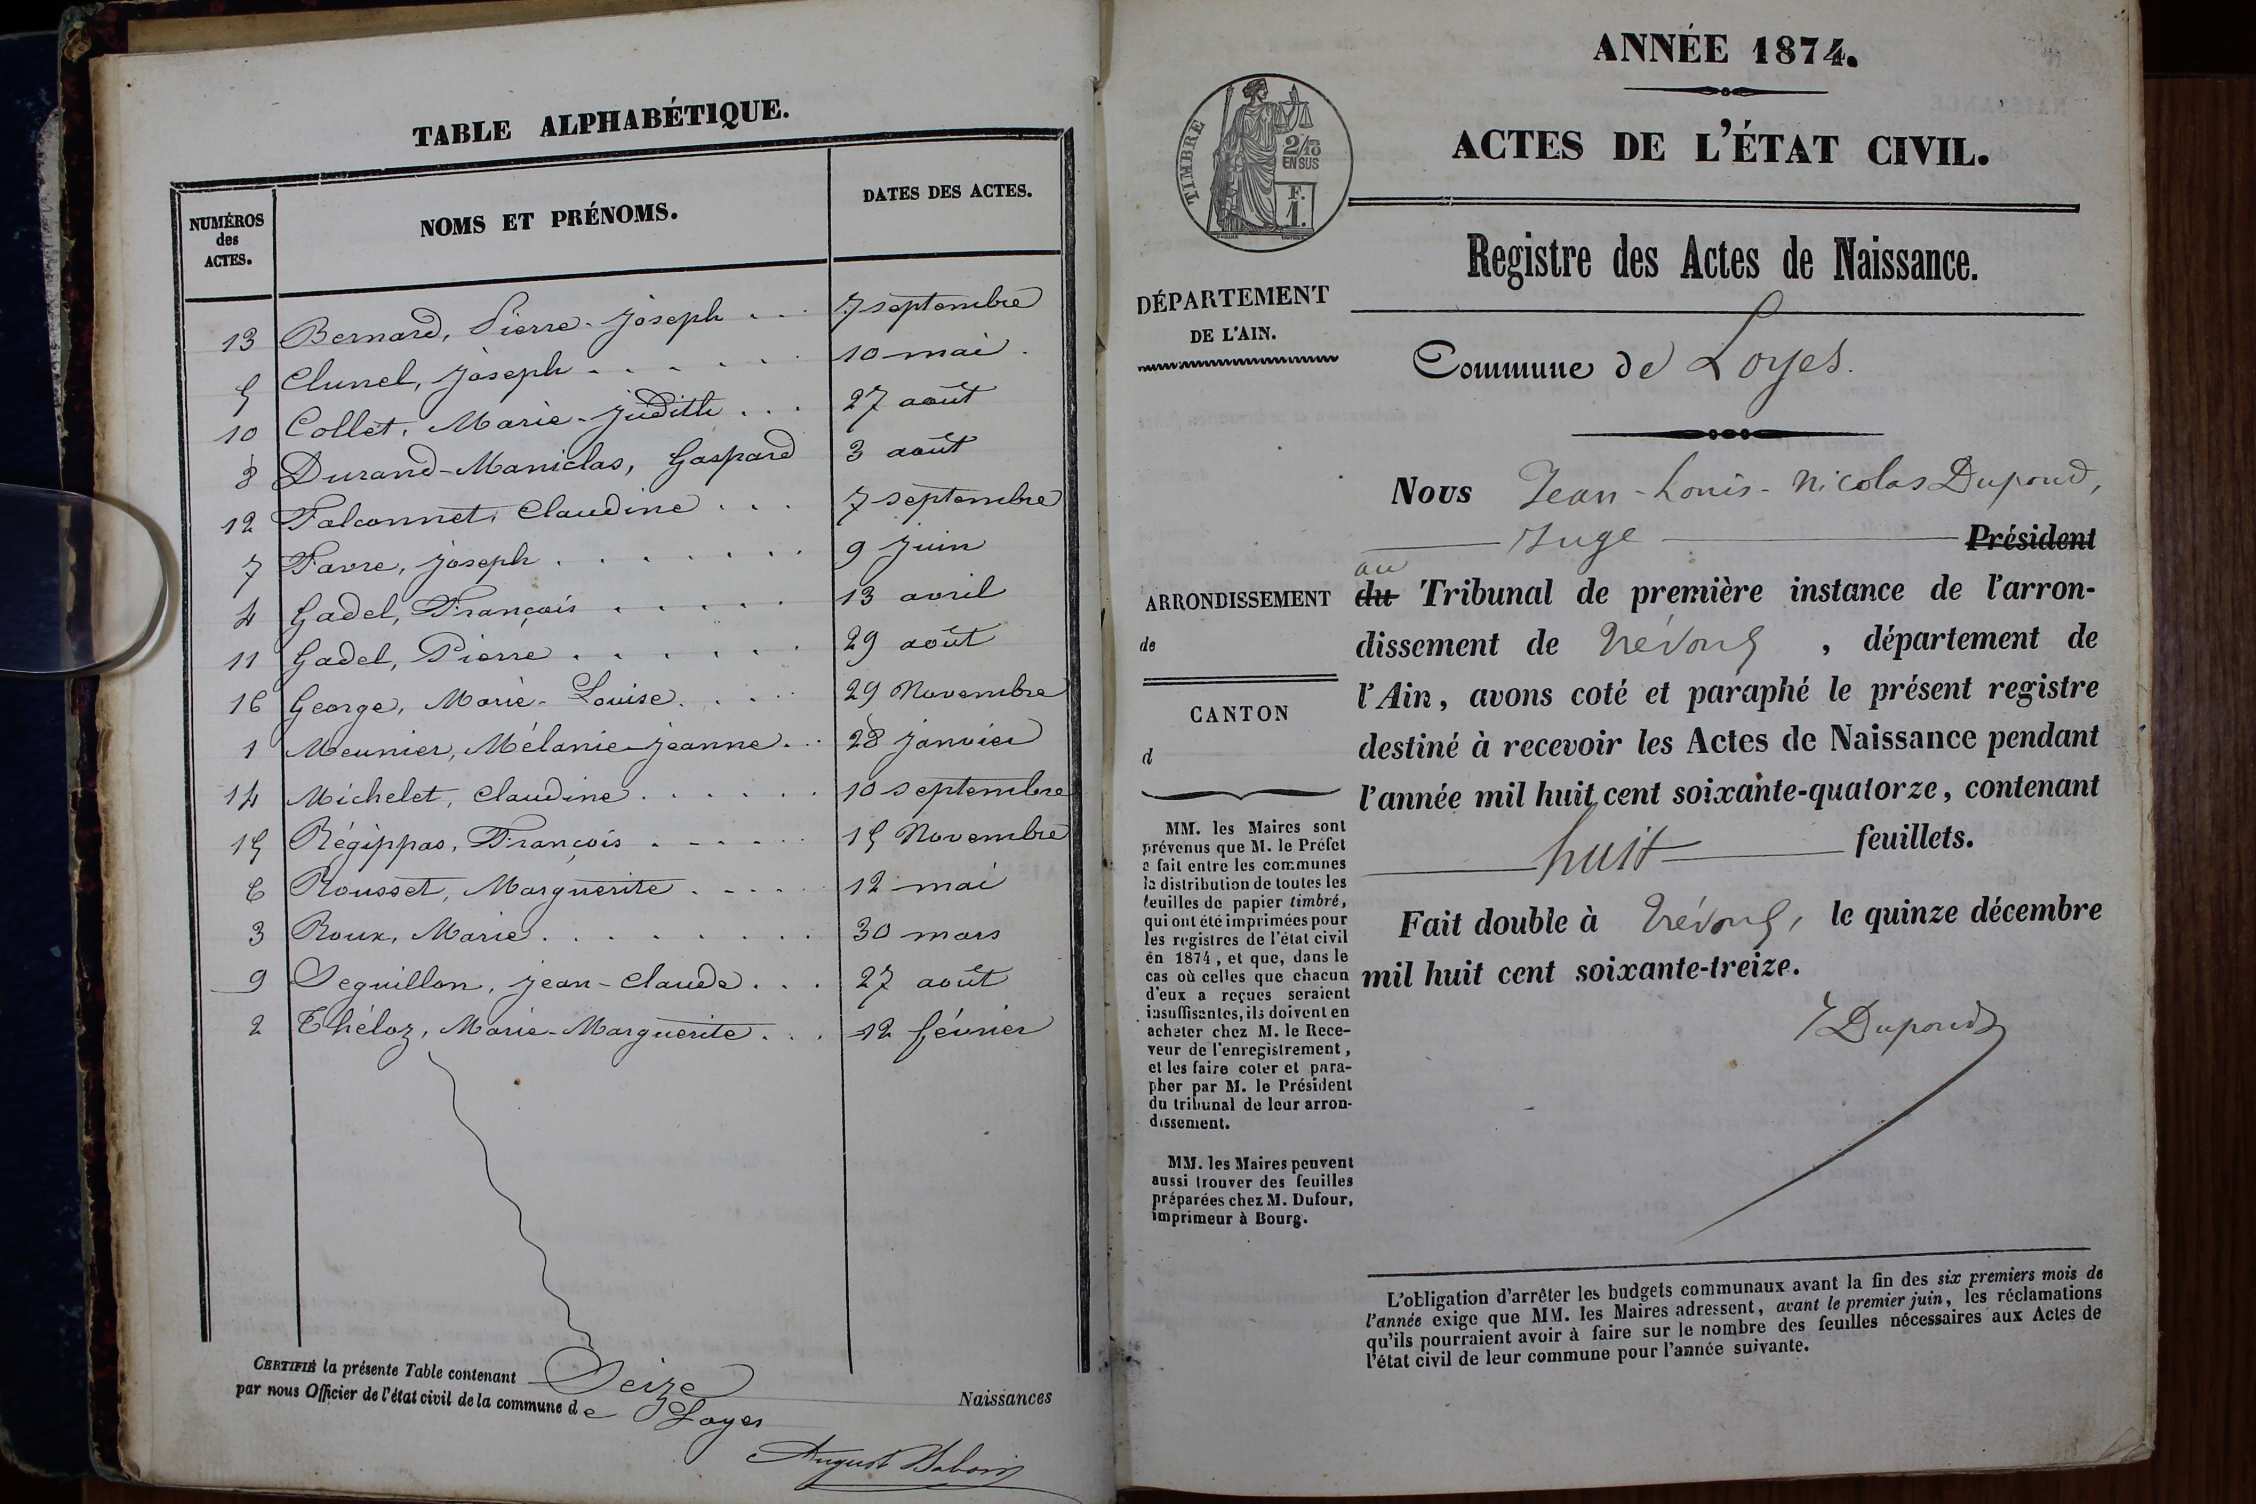 TABLE ALPHABÉTIQUE.
NUMÉROS des ACTES.
NOMS ET PRÉNOMS.
DATES DES ACTES.
13 Bernard, Pierre-Joseph . . . 7 septembre
5 Clunel, Joseph . . . . . 10 mai
10 Collet, Marie-Judith . . . 27 août
8 Durand-Maniclas, Gaspard 3 août
12 Falconnet, Claudine . . . 7 septembre
7 Favre, Joseph . . . . . . . 9 Juin
4 Gadel, François . . . . . 13 avril
11 Gadel, Pierre . . . . . . 29 août
16 George, Marie-Louise . . . 29 Novembre
1 Meunier, Mélanie-Jeanne . . 28 janvier
14 Michelet, Claudine . . . . . . 10 septembre
15 Régippas, François . . . . . 15 Novembre
6 Rousset, Marguerite . . . . 12 mai
3 Roux, Marie . . . . . . . . 30 mars
9 Seguillon, Jean-Claude . . . 27 août
2 Théloz, Marie-Marguerite . . . 12 février
CERTIFIÉ la présente Table contenant Seize Naissances
par nous Officier de l'état civil de la commune de Loyes
ANNÉE 1874.
ACTES DE L'ÉTAT CIVIL.
TIMBRE
2/10
EN SUS
F.
1.
Registre des Actes de Naissance.
DÉPARTEMENT
DE L'AIN.
Commune de Loyes.
Nous Jean-Louis-Nicolas Dupond,
Juge Président
au
du Tribunal de première instance de l'arron-
dissement de Trévoux, département de
l'Ain, avons coté et paraphé le présent registre
destiné à recevoir les Actes de Naissance pendant
l'année mil huit cent soixante-quatorze, contenant
huit feuillets.
Fait double à Trévoux, le quinze décembre
mil huit cent soixante-treize.
Dupond
ARRONDISSEMENT
de
CANTON
d
MM. les Maires sont
prévenus que M. le Préfet
a fait entre les communes
la distribution de toutes les
feuilles de papier timbré,
qui ont été imprimées pour
les registres de l'état civil
en 1874, et que, dans le
cas où celles que chacun
d'eux a reçues seraient
insuffisantes, ils doivent en
acheter chez M. le Rece-
veur de l'enregistrement,
et les faire coter et para-
pher par M. le Président
du tribunal de leur arron-
dissement.
MM. les Maires peuvent
aussi trouver des feuilles
préparées chez M. Dufour,
imprimeur à Bourg.
L'obligation d'arrêter les budgets communaux avant la fin des six premiers mois de
l'année exige que MM. les Maires adressent, avant le premier juin, les réclamations
qu'ils pourraient avoir à faire sur le nombre des feuilles nécessaires aux Actes de
l'état civil de leur commune pour l'année suivante.